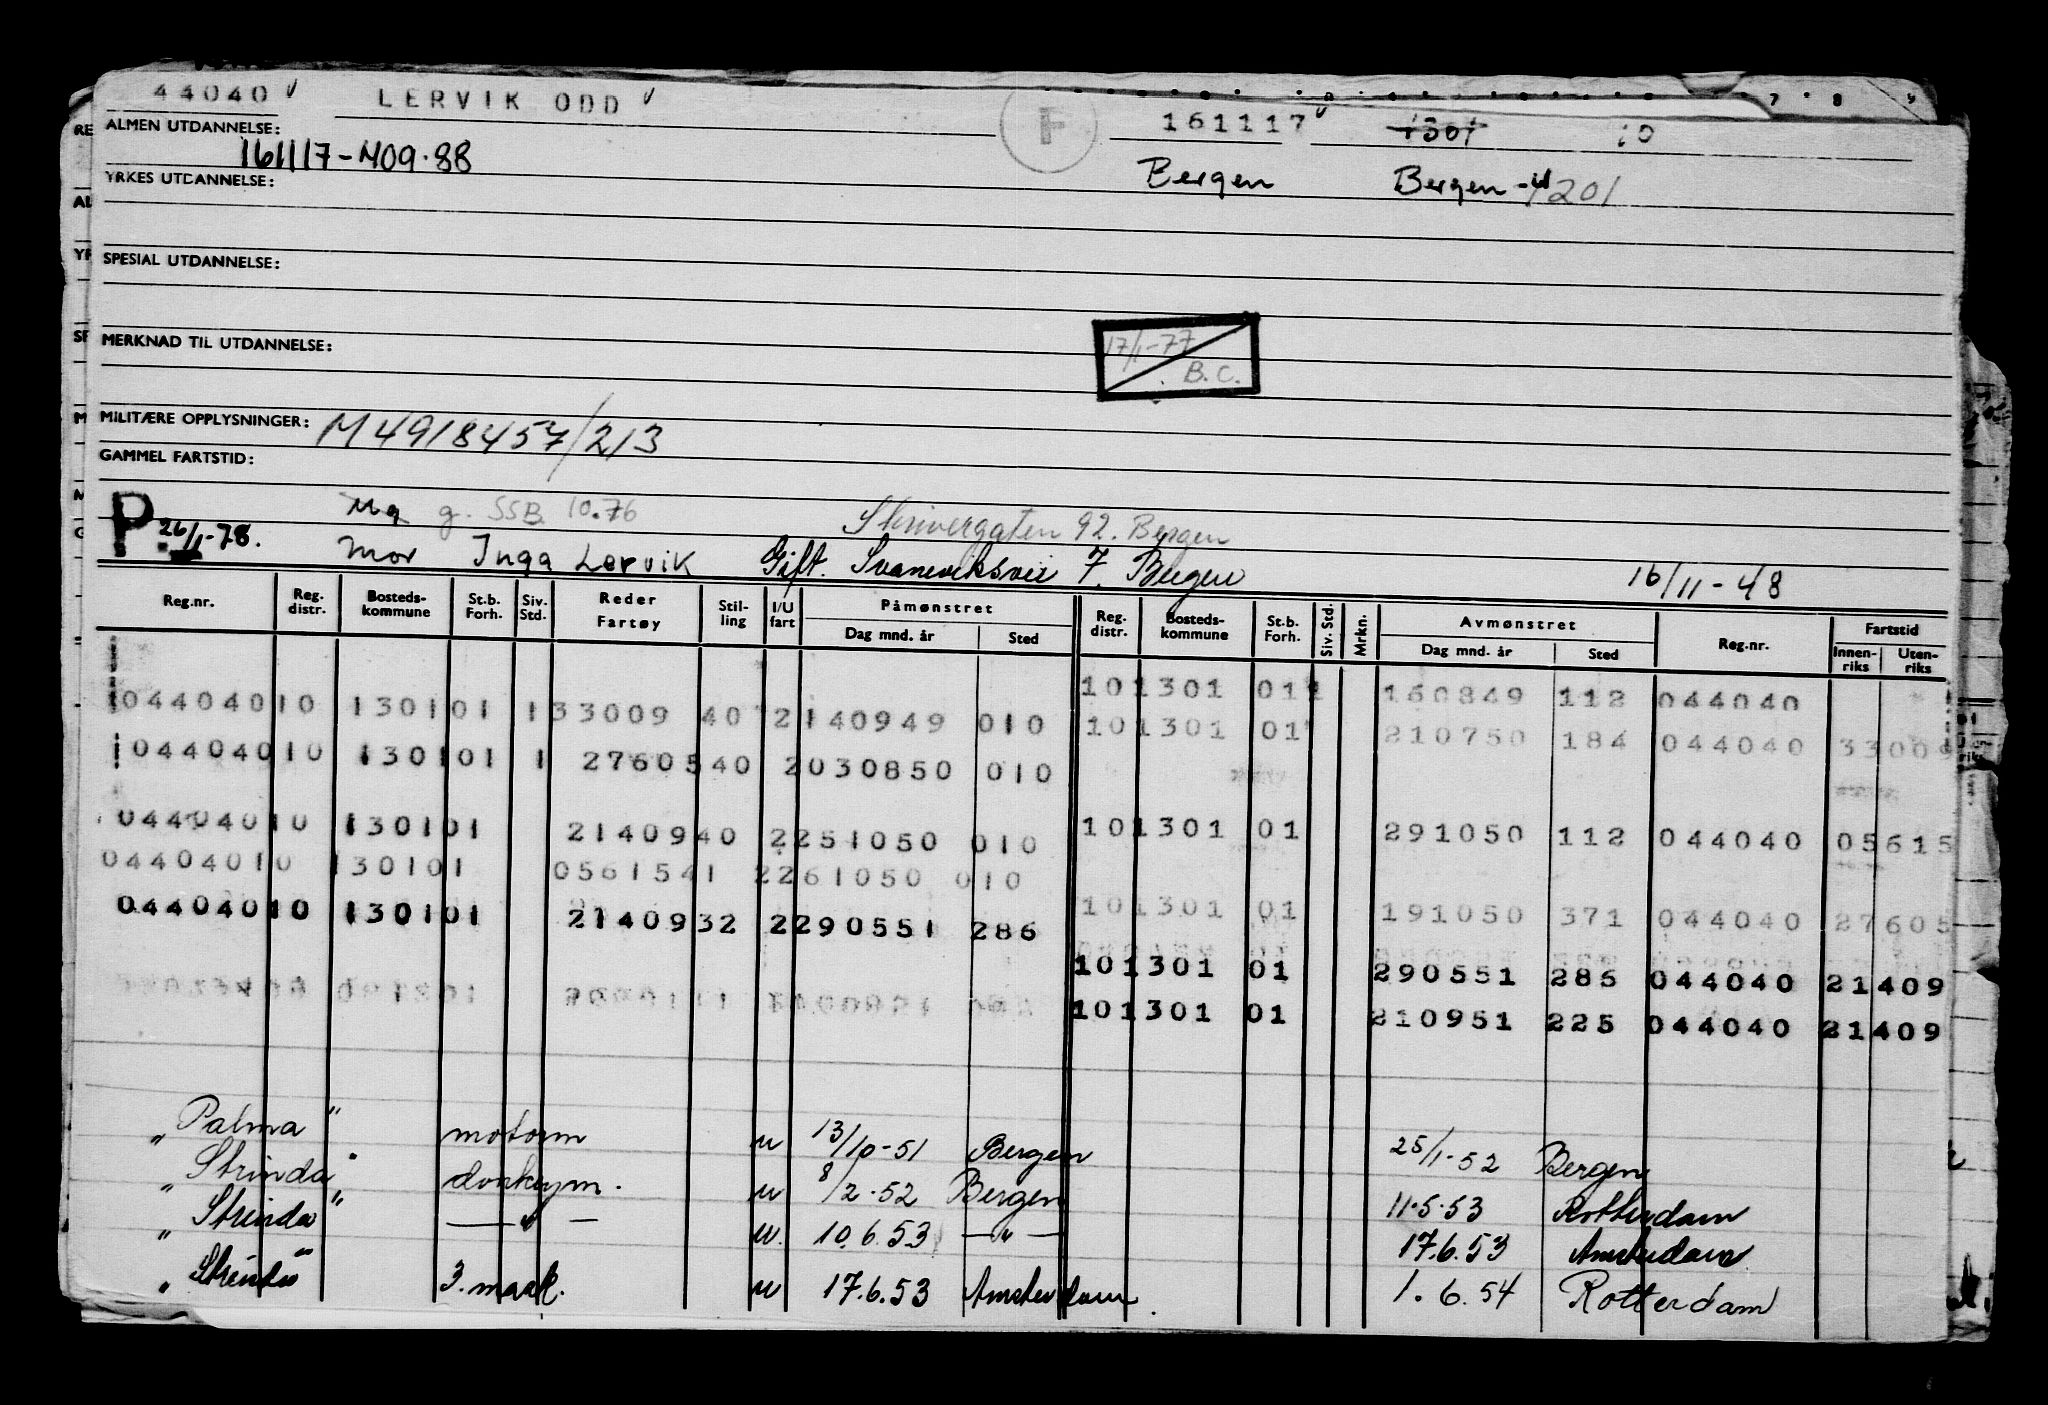 44040 LERVIK ODD F 161117 1301 10
ALMEN UTDANNELSE:
161117-409.88
Bergen Bergen 1201
YRKES UTDANNELSE:
SPESIAL UTDANNELSE:
17/1-77
B.C.
MERKNAD TIL UTDANNELSE:
MILITÆRE OPPLYSNINGER: M4918457/213
GAMMEL FARTSTID:
P 26/1-78. g. SSB. 10.76 Skrivergaten 92. Bergen
mor Inga Lervik Gift. Svaneviksvei 7. Bergen 16/11-48
Reg.nr. Reg. distr. Bosteds- kommune St.b. Forh. Siv. Std. Reder Fartøy Stil- ling I/U fart Påmønstret Dag mnd. år Sted Reg. distr. Bosteds- kommune St.b. Forh. Siv. Std. Mrkn. Avmønstret Dag mnd. år Sted Reg.nr. Fartstid Innen- riks Uten- riks
101301 011 160849 112 044040
04404010 130101 133009 40 2140949 010
101301 01 210750 184 044040 33009
04404010 130101 1 2760540 2030850 010
04404010 130101 2140940 2251050 010
101301 01 291050 112 044040 05615
04404010 130101 0561541 2261050 010
04404010 130101 2140932 2290551 286
101301 01 191050 371 044040 27605
101301 01 290551 285 044040 21409
101301 01 210951 225 044040 21409
"Palma" motorm u 13/10-51 Bergen 25/1-52 Bergen
"Strinda" donkeym. u 8/2-52 Bergen 11.5.53 Rotterdam
"Strinda" —"— u. 10.6.53 —"— 17.6.53 Amsterdam
"Strinda" 3. mask. u 17.6.53 Amsterdam. 1.6.54 Rotterdam